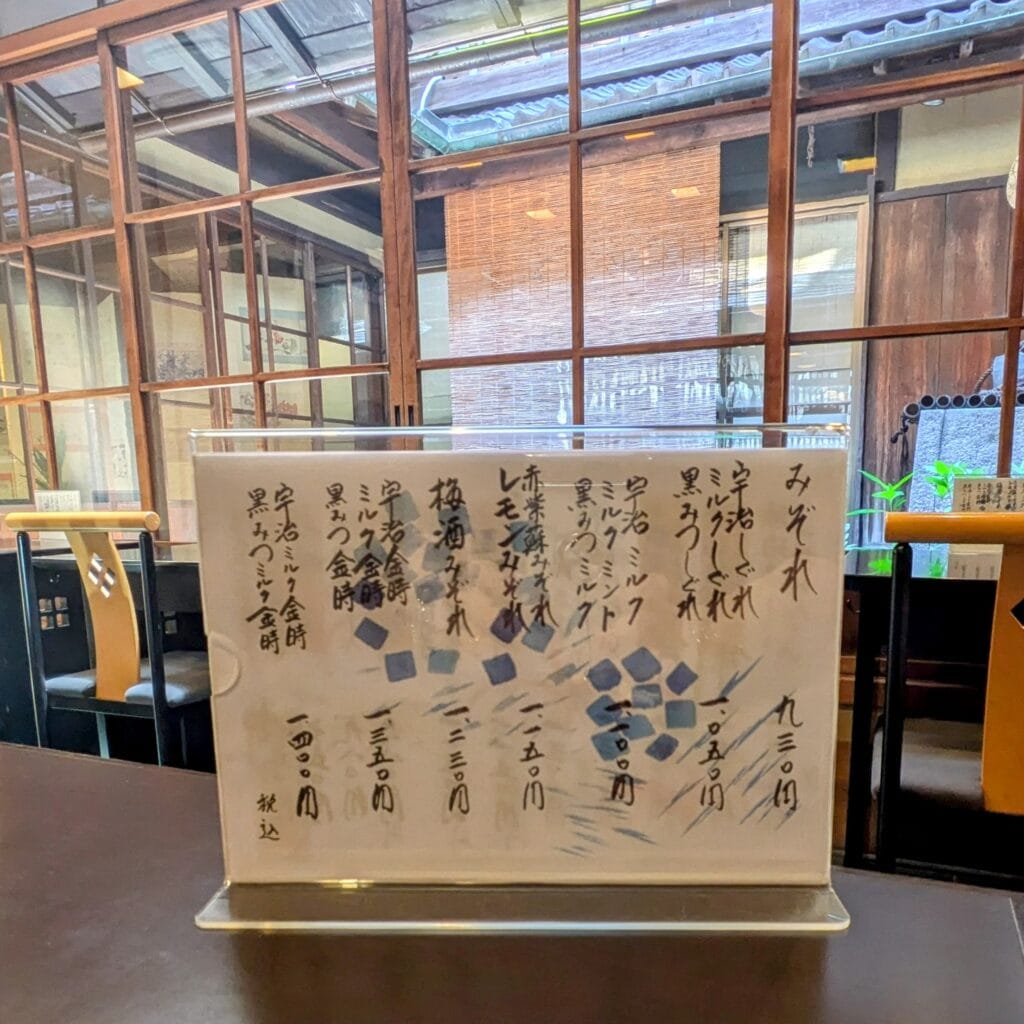 みぞれ
九三〇円
宇治しぐれ
ミルクしぐれ
黒みつしぐれ
一、〇五〇円
宇治ミルク
ミルクミント
黒みつミルク
一、一〇〇円
赤紫蘇みぞれ
レモンみぞれ
一、一五〇円
梅酒みぞれ
一、二三〇円
宇治金時
ミルク金時
黒みつ金時
一、三五〇円
宇治ミルク金時
黒みつミルク金時
一、四〇〇円
税込